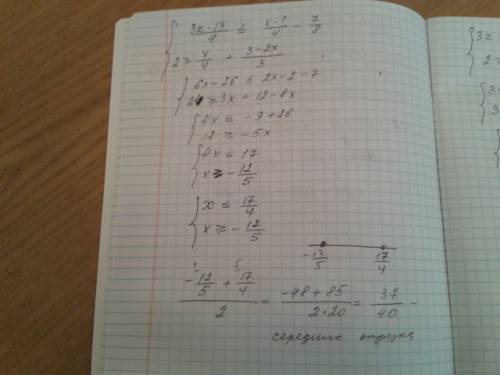 { (3x-13)/4 ≤ (x-1)/4 - 7/8
2 ≥ x/4 + (3-2x)/3
{ 6x-26 ≤ 2x-2-7
24 ≥ 3x+12-8x
{ 4x ≤ -9+26
12 ≥ -5x
{ 4x ≤ 17
x ≥ -12/5
{ x ≤ 17/4
x ≥ -12/5
-12/5 17/4
(-12/5 + 17/4)/2 = (-48+85)/(2·20) = 37/40 -
середина отрезка
{ 3x